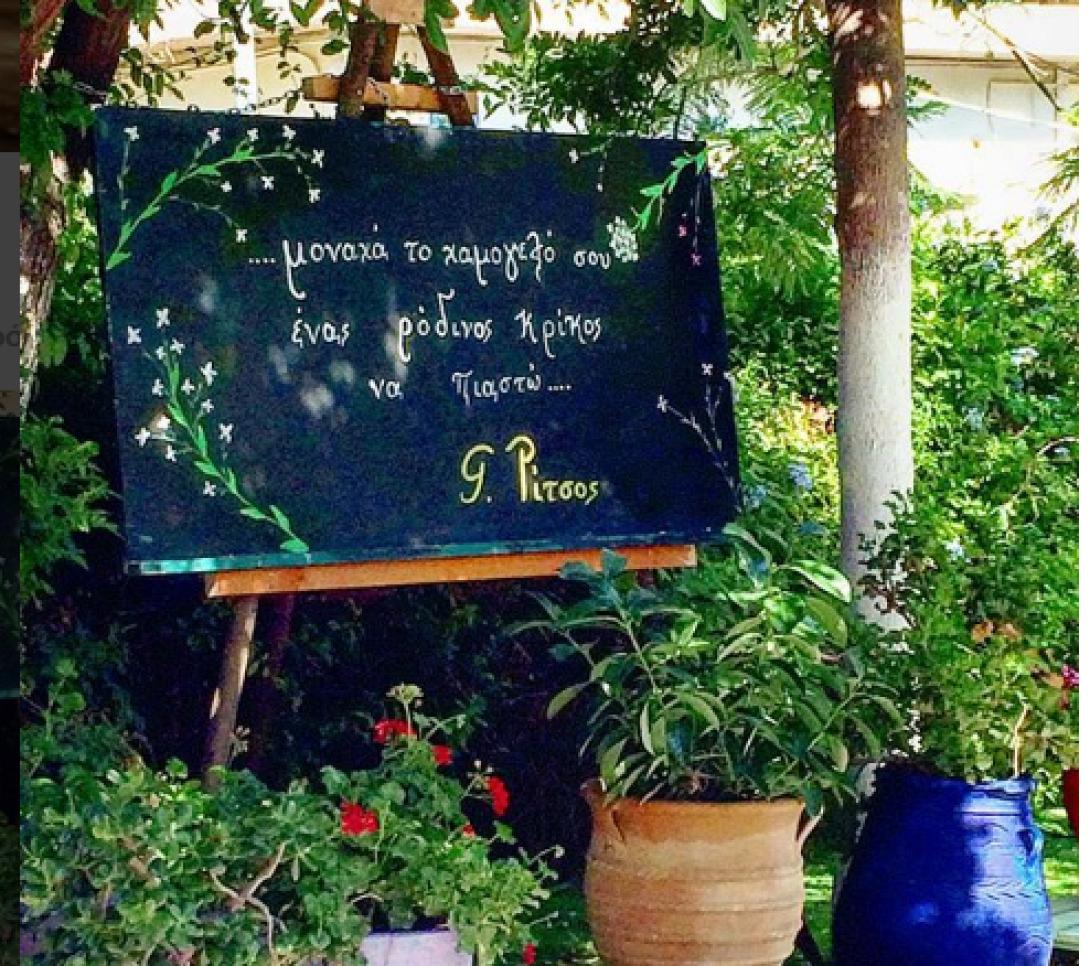 ....μοναχά το χαμογελό σου
ένας ρόδινος κρίκος
να πιαστώ....
G. Ρίτσος